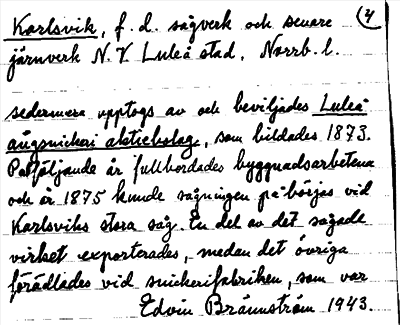 Karlsvik, f. d. sågverk och senare (4
järnverk N. V Luleå stad, Norrb. l.
sedermera upptogs av och beviljades Luleå
ångsnickeri aktiebolag, som bildades 1873.
Påföljande år fullbordades byggnadsarbetena
och år 1875 kunde sågningen påbörjas vid
Karlsviks stora såg. En del av det sågade
virket exporterades, medan det övriga
förädlades vid snickerifabriken, som var
Edvin Brännström 1943.